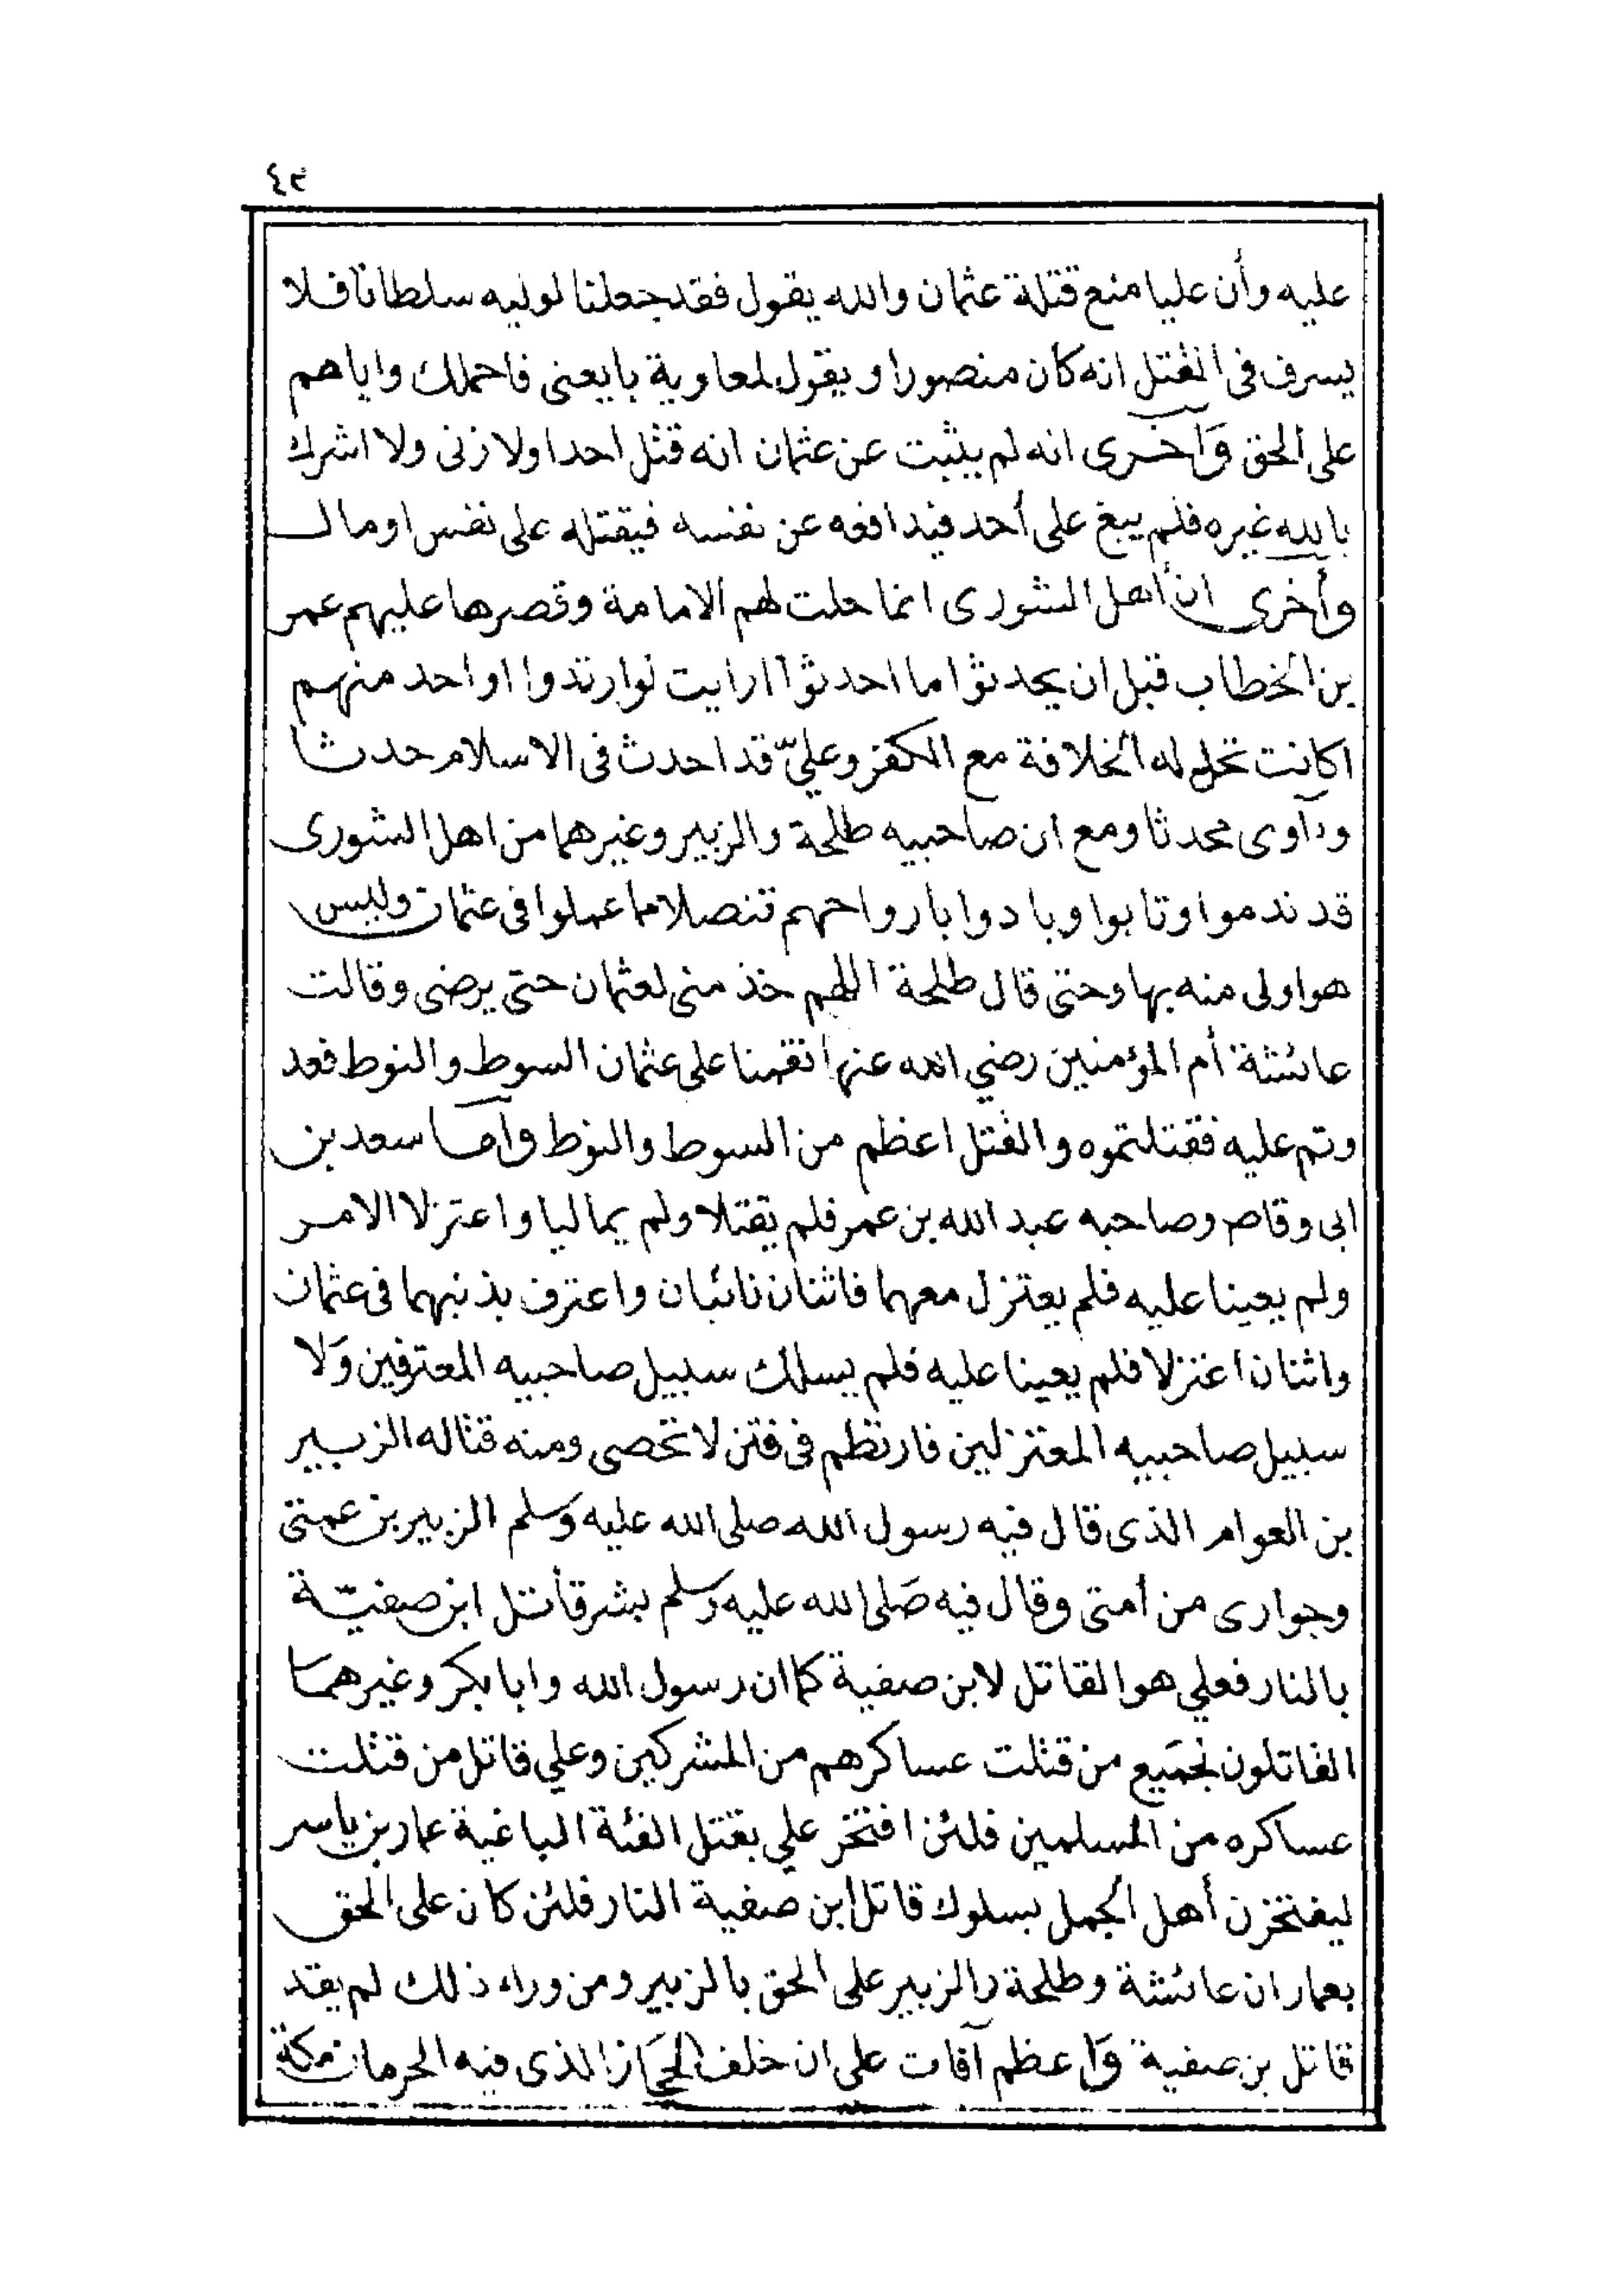 ٤٣
عليه وأن عليا منع قتلة عثمان والله يقول فقد جعلنا لوليه سلطانا فلا
يسرف فى القتل انه كان منصورا ويقول لمعاوية بايعنى فاحملك واياهم
على الحق وآخرى انه لم يثبت عن عثمان انه قتل احدا ولا زنى ولا اشرك
بالله غيره فلم يبغ على أحد فيدافعه عن نفسه فيقتله على نفس اومال
وأخرى ان أهل الشورى انما حلت لهم الامامة وقصرها عليهم عمر
بن الخطاب قبل ان يحدثوا ما احدثوا ارايت لوارتدوا اواحد منهم
اكانت تحل له الخلافة مع الكفر وعليّ قد احدث فى الاسلام حدثا
وآوى محدثا ومع ان صاحبيه طلحة والزبير وغيرهما من اهل الشورى
قد ندموا وتابوا وبادوا بارواحهم تنصلا مما عملوا فى عثمان وليس
هو اولى منه بها وحتى قال طلحة اللهم خذ منى لعثمان حتى يرضى وقالت
عائشة أم المؤمنين رضي الله عنها نقمنا على عثمان السوط والنوط فعد
وتم عليه فقتلتموه والقتل اعظم من السوط والنوط وآما سعد بن
ابى وقاص وصاحبه عبد الله بن عمر فلم يقتلا ولم يماليا واعتزلا الامر
ولم يعينا عليه فلم يعتزل معهما فاثنان تائبان واعترف بذنبهما فى عثمان
واثنان اعتزلا فلم يعينا عليه فلم يسلك سبيل صاحبيه المعترفين وَلا
سبيل صاحبيه المعتزلين فارتطم فى فتن لا تحصى ومنه قتاله الزبير
بن العوام الذى قال فيه رسول الله صلى الله عليه وَسلم الزبير بن عمتى
وجوارى من أمتى وقال فيه صَلى الله عليه وَسلم بشر قأتل ابن صفيّة
بالنار فعلي هو القاتل لابن صفية كما ان رسول الله وابا بكر وغيرهما
القاتلون لجَميع من قتلت عساكرهم من المشركين وعلي قاتل من قتلت
عساكره من المسلمين فلئن افتخر علي بقتل الفئة الباغية عمار بن ياسر
ليفتخرن أهل الجمل بسلوك قاتل ابن صفية النار فلئن كان على الحق
بعمار ان عائشة وطلحة والزبير على الحق بالزبير ومن وراء ذلك لم يقد
قاتل بن صفية وَاعظم آفات على ان خلف الحجَاز الذى فيه الحرمان مكة